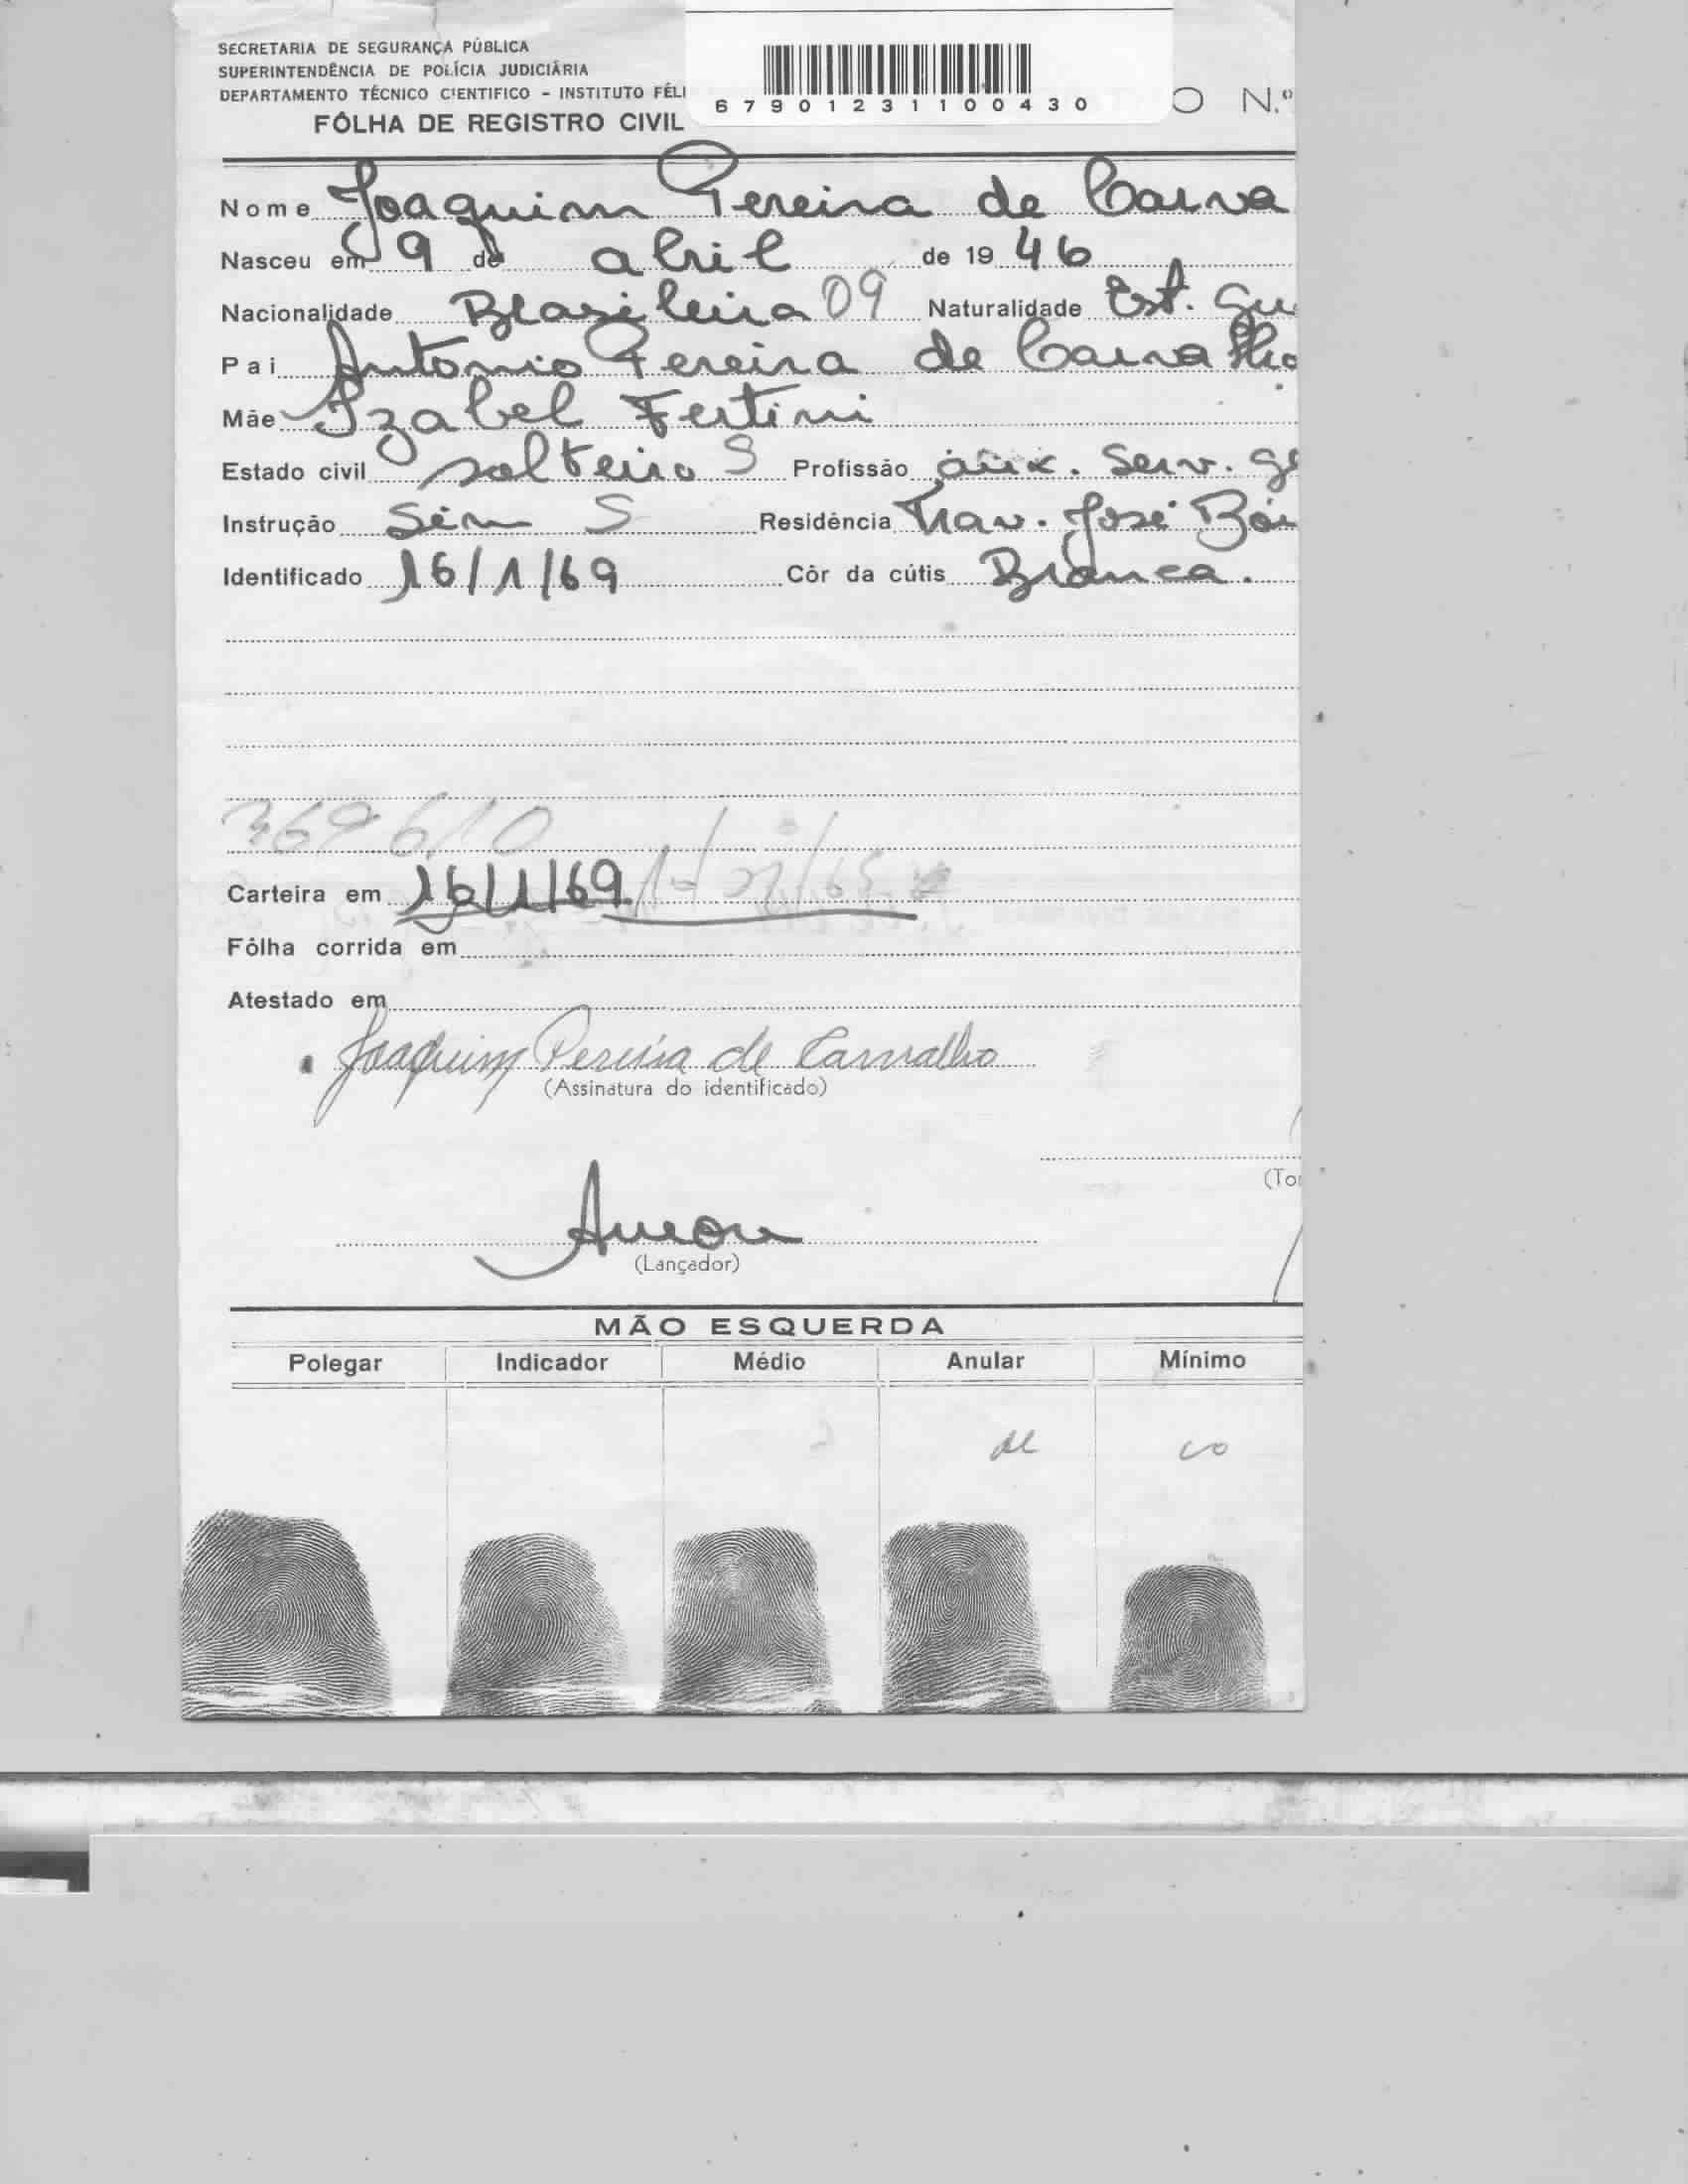 SECRETARIA DE SEGURANÇA PÚBLICA
SUPERINTENDÊNCIA DE POLÍCIA JUDICIÁRIA
DEPARTAMENTO TÉCNICO CIENTIFICO - INSTITUTO FÉLI
FÔLHA DE REGISTRO CIVIL
67901231100430
O N.º
Nome Joaquim Pereira de Carva
Nasceu em 9 de abril de 1946
Nacionalidade Brasileira 09 Naturalidade Est. Gu
Pai Antonio Pereira de Carvalho
Mãe Izabel Fertini
Estado civil solteiro S Profissão aux. Serv. ge
Instrução Sim S Residência Trav. José Bó
Identificado 16/1/69 Côr da cútis Branca.
369610
Carteira em 16/1/69
Fôlha corrida em
Atestado em
Joaquim Pereira de Carvalho
(Assinatura do identificado)
(To
(Lançador)
MÃO ESQUERDA
Polegar Indicador Médio Anular Mínimo